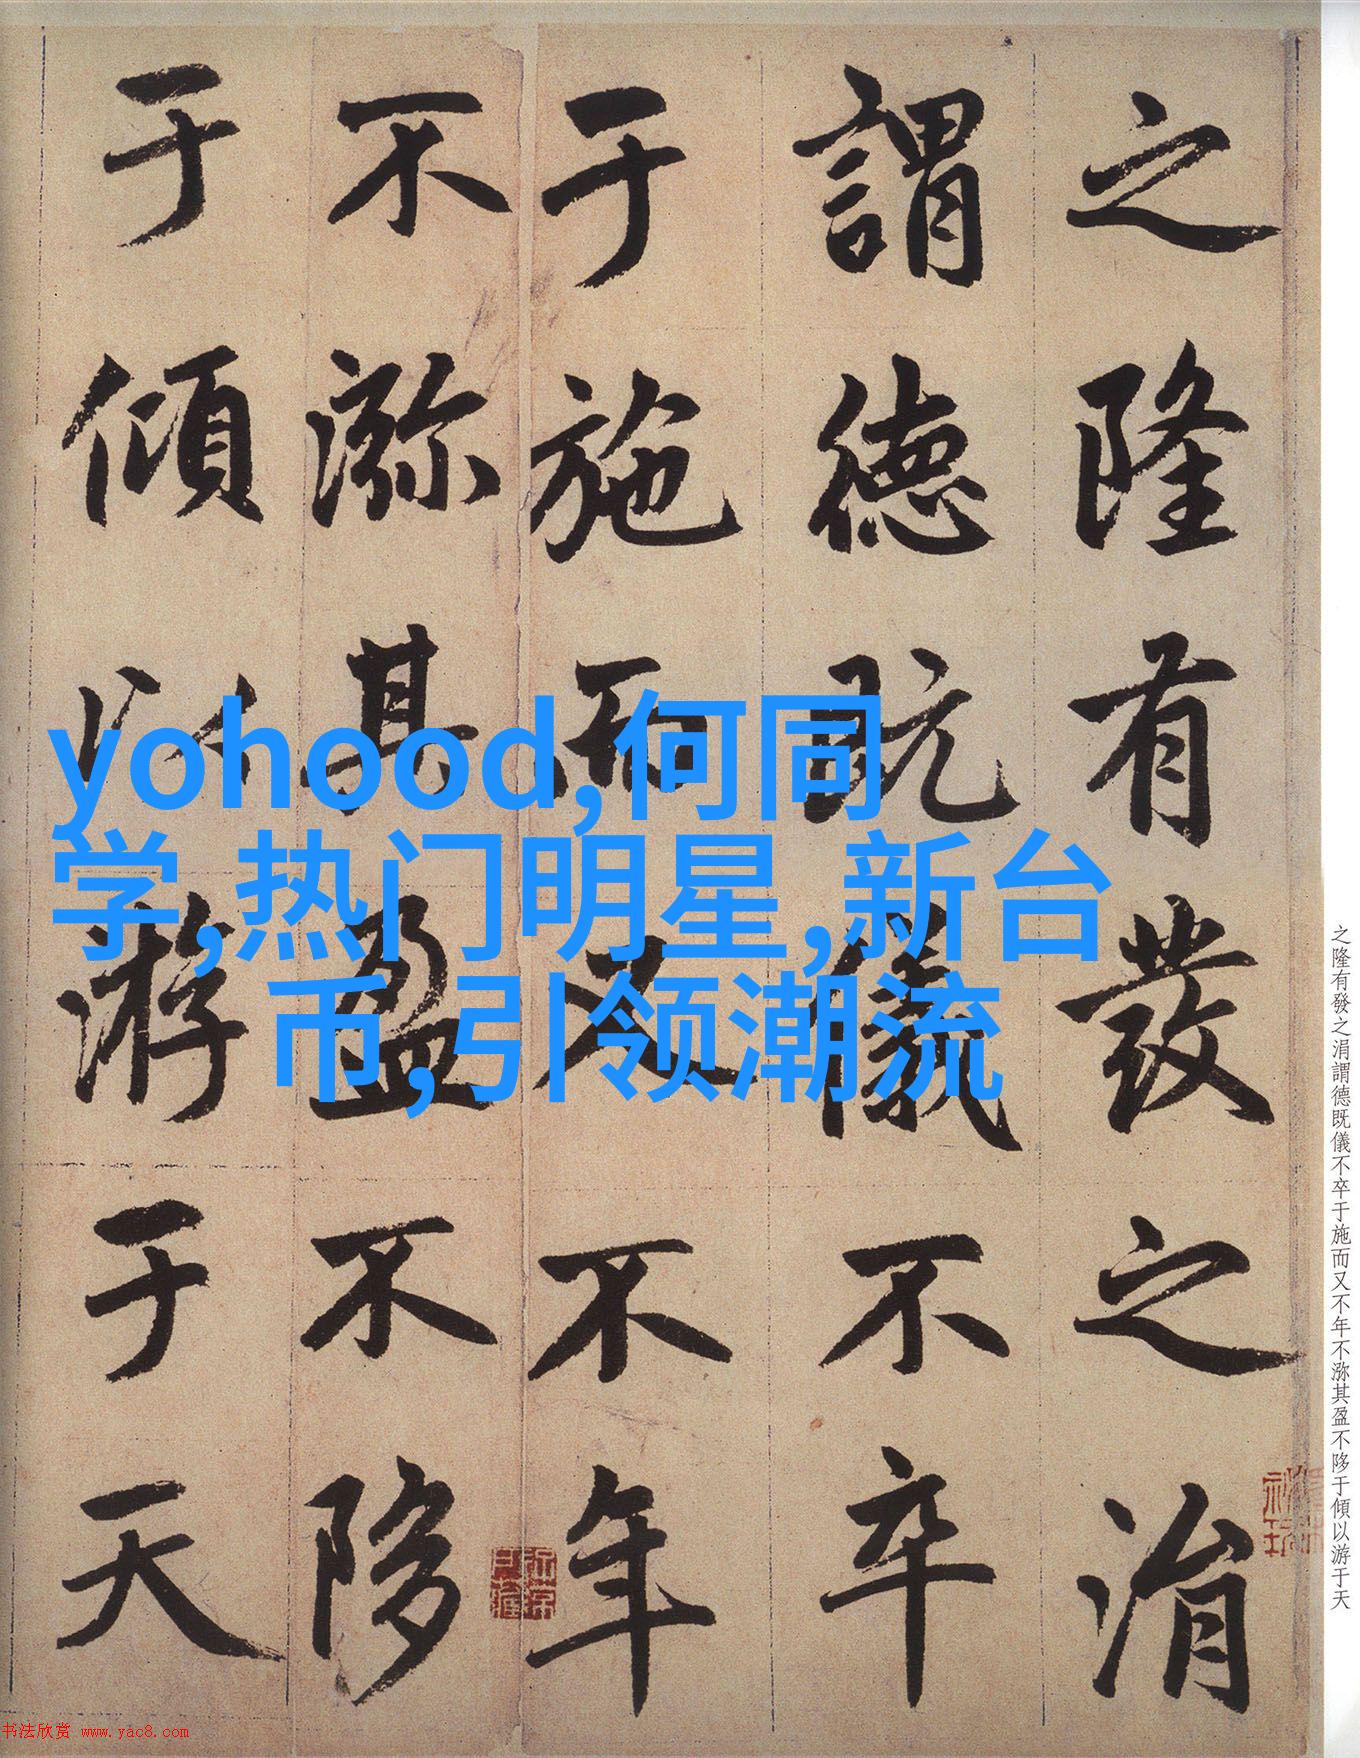 之隆有發之涓
謂德既儀不卒
于施而又不年
不瀰其盈不陊
于傾以游于天
yohood,何同
学,热门明星,新台
币,引领潮流
之隆有發之涓謂德既儀不卒于施而又不年不瀰其盈不陊于傾以游于天
书法欣赏 www.yac8.com